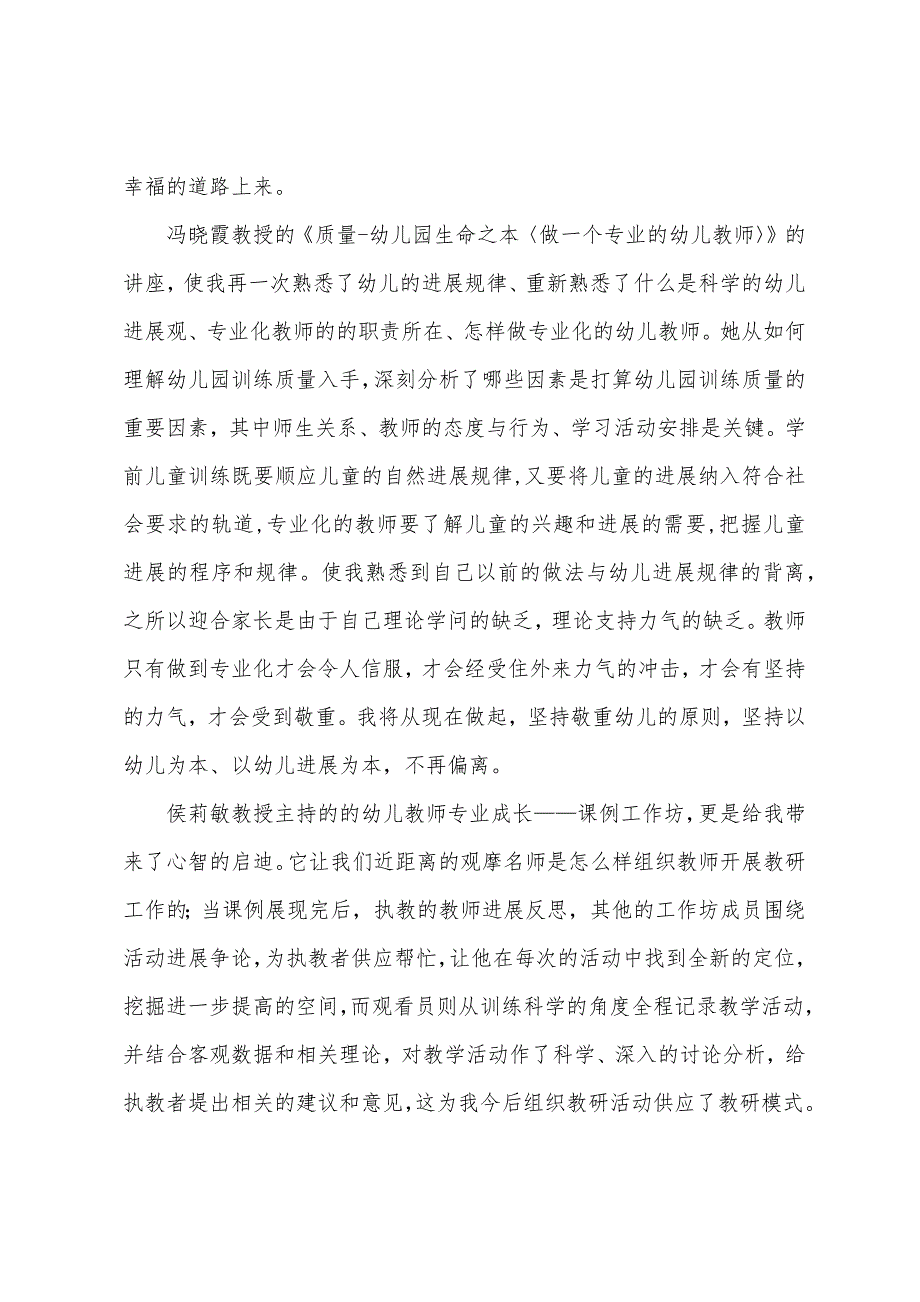 幸福的道路上来。
冯晓霞教授的《质量-幼儿园生命之本〈做一个专业的幼儿教师〉》的
讲座，使我再一次熟悉了幼儿的进展规律、重新熟悉了什么是科学的幼儿
进展观、专业化教师的的职责所在、怎样做专业化的幼儿教师。她从如何
理解幼儿园训练质量入手，深刻分析了哪些因素是打算幼儿园训练质量的
重要因素，其中师生关系、教师的态度与行为、学习活动安排是关键。学
前儿童训练既要顺应儿童的自然进展规律,又要将儿童的进展纳入符合社
会要求的轨道,专业化的教师要了解儿童的兴趣和进展的需要,把握儿童
进展的程序和规律。使我熟悉到自己以前的做法与幼儿进展规律的背离，
之所以迎合家长是由于自己理论学问的缺乏，理论支持力气的缺乏。教师
只有做到专业化才会令人信服，才会经受住外来力气的冲击，才会有坚持
的力气，才会受到敬重。我将从现在做起，坚持敬重幼儿的原则，坚持以
幼儿为本、以幼儿进展为本，不再偏离。
侯莉敏教授主持的的幼儿教师专业成长——课例工作坊，更是给我带
来了心智的启迪。它让我们近距离的观摩名师是怎么样组织教师开展教研
工作的；当课例展现完后，执教的教师进展反思，其他的工作坊成员围绕
活动进展争论，为执教者供应帮忙，让他在每次的活动中找到全新的定位，
挖掘进一步提高的空间，而观看员则从训练科学的角度全程记录教学活动，
并结合客观数据和相关理论，对教学活动作了科学、深入的讨论分析，给
执教者堤出相关的建议和意见，这为我今后组织教研活动供应了教研模式。